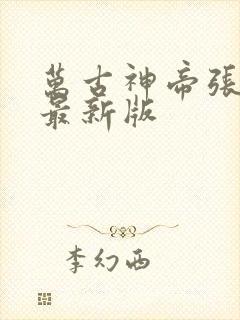 萬古神帝張
最新版
李幻西